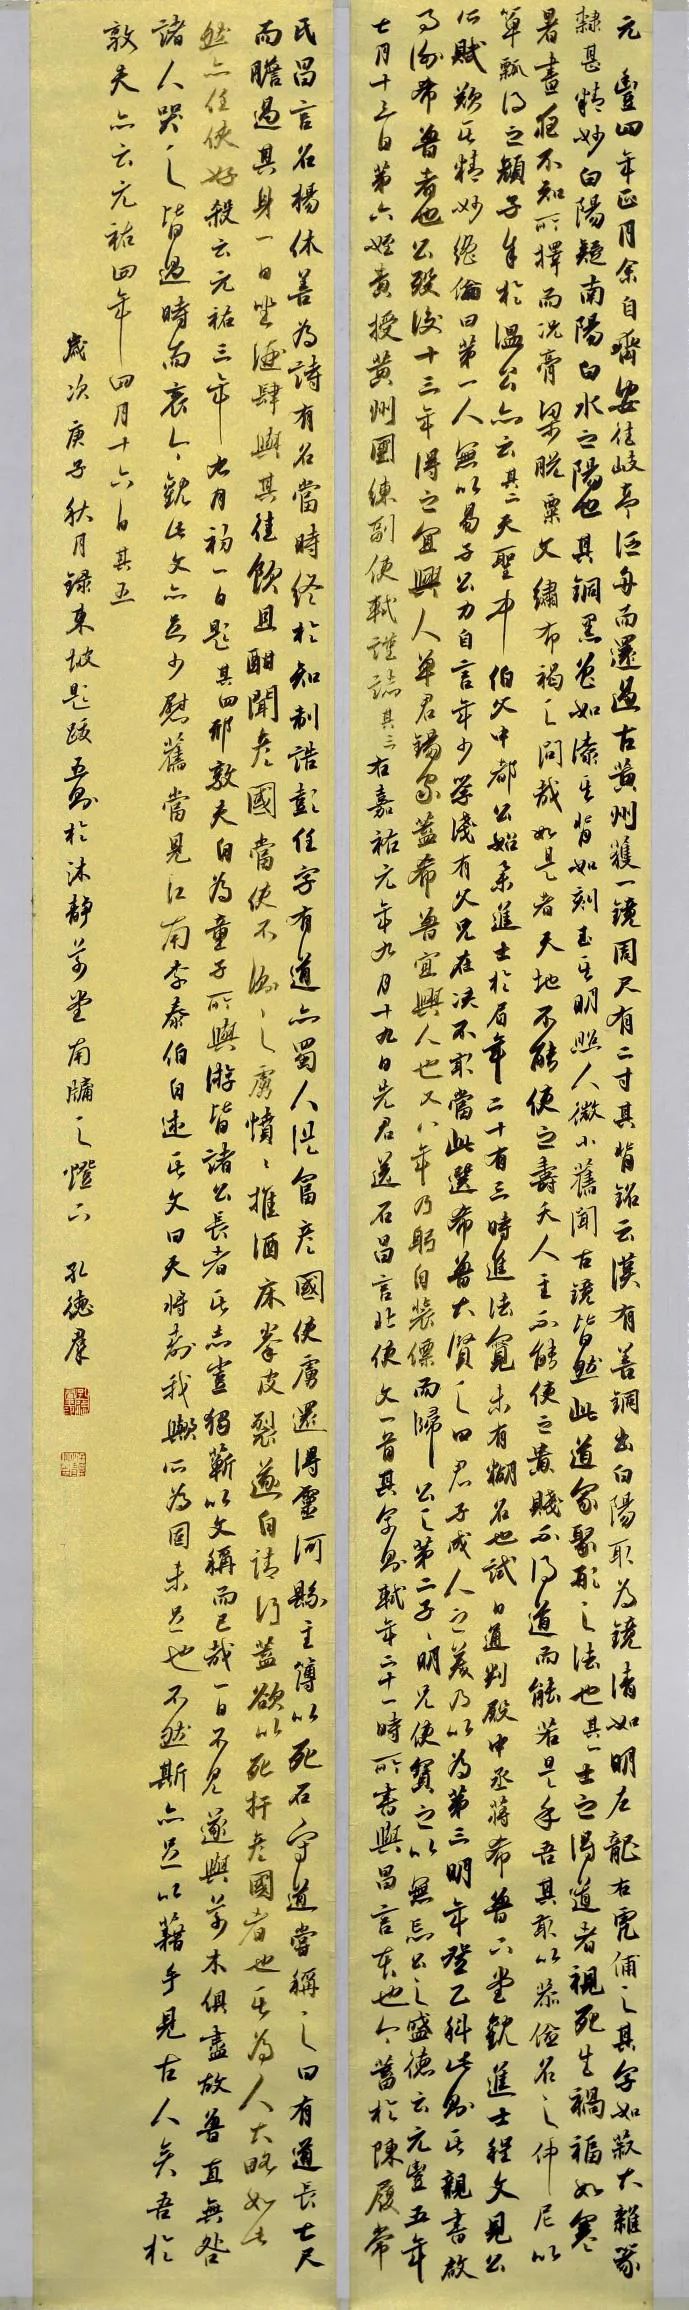 元豐四年正月余自齊安往岐亭泛舟而還過古黃州獲一鏡周尺有二寸其背銘云漢有善銅出白陽取為鏡清如明左龍右虎俌之其字如菽大雜篆
隸甚精妙白陽疑南陽白水之陽也其銅黑色如漆其背如刻玉其明照人微小舊聞古鏡皆然此道家聚形之法也其一士之得道者視死生禍福如寒
暑晝夜不知所擇而況膏粱脫粟文繡布褐之間哉如是者天地不能使之壽夭人主不能使之貴賤不得道而能若是乎吾其敢以恭儉名之仲尼以
簞瓢得之顏子余於溫公亦云其二天聖中伯父中都公始舉進士於眉年二十有三時進法寬未有糊名也試日通判殿中丞蔣希魯下堂觀進士程文見公
所賦歎其精妙絕倫曰第一人無以易子公力自言年少學淺有父兄在決不敢當此選希魯大賢之曰君子成人之美乃以為第三明年登乙科此則其親書啟
事謝希魯者也公歿後十三年得之宜興人單君錫家蓋希魯宜興人也又八年乃躬自裝標而歸公之第二子子明兄使寶之以無忘公之盛德云元豐五年
七月十三日第六姪責授黃州團練副使軾謹誌其三右嘉祐元年九月十九日先君送石昌言北使文一首其字則軾年二十一時所書與昌言本也今蓄於陳履常
氏昌言名楊休善為詩有名當時終於知制誥彭任字有道亦蜀人從富彥國使虜還得靈河縣主簿以死石守道嘗稱之曰有道長七尺
而膽過其身一日坐酒肆與其徒飲且酣聞彥國當使不測之虜憤憤推酒床拳皮裂遂自請行蓋欲以死扞彥國者也其為人大略如此
然亦任俠好殺云元祐三年九月初一日題其四邢敦夫自為童子所與游皆諸公長者其志豈獨蘄以文稱而已哉一日不見遂與草木俱盡故魯直無咎
諸人哭之皆過時而哀今觀此文亦足少慰舊嘗見江南李泰伯自述其文曰天將壽我歟所為固未足也不然斯亦足以藉手見古人矣吾於
敦夫亦云元祐四年四月十六日其五
歲次庚子秋月錄東坡題跋五則於沐靜草堂南牖之燈下 孔德群